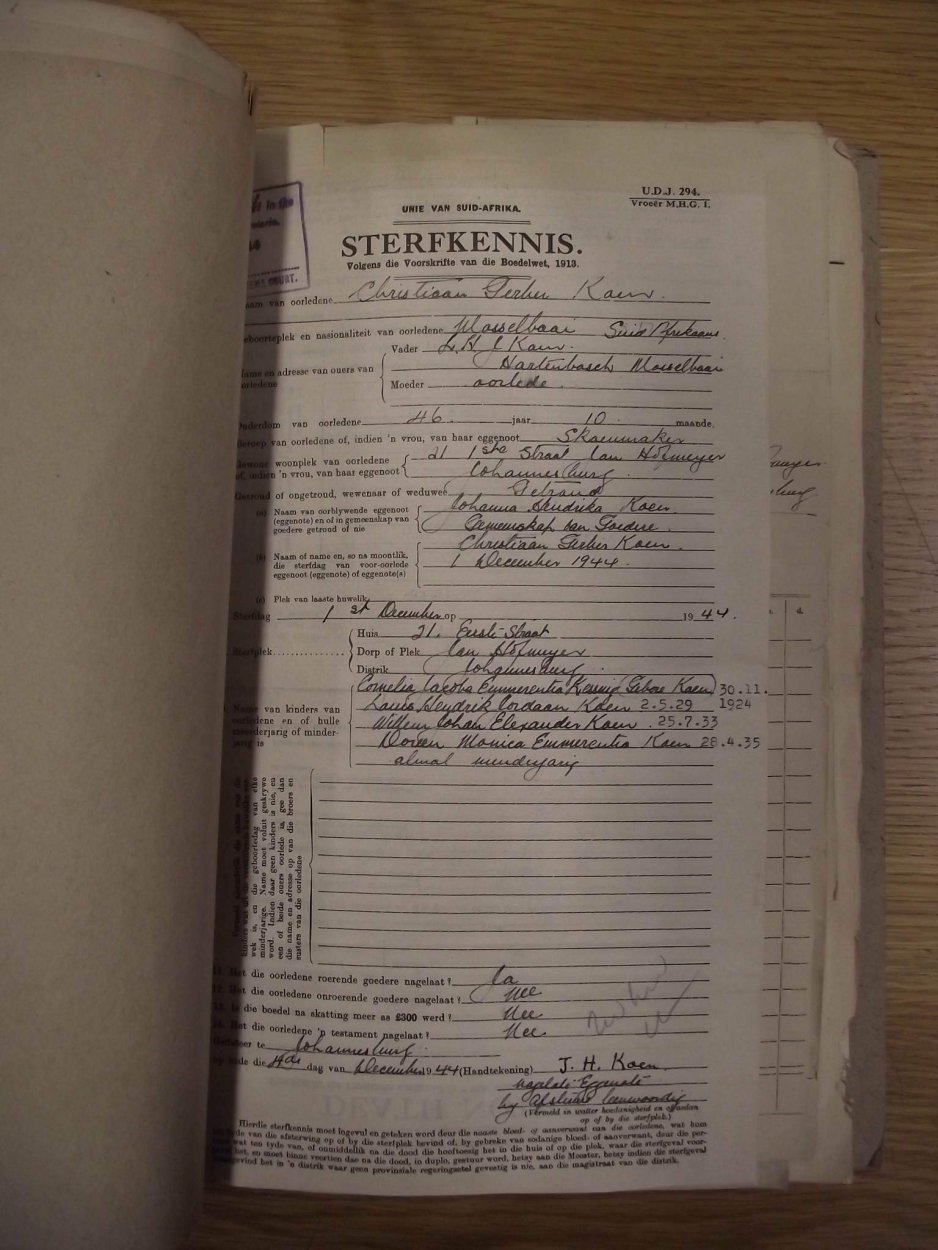 in the
COURT.
U.D.J. 294.
Vroeër M.H.G. 1.
UNIE VAN SUID-AFRIKA.
STERFKENNIS.
Volgens die Voorskrifte van die Boedelwet, 1913.
van oorledene Christiaan Ferber Koen.
en nasionaliteit van oorledene Mosselbaai Suid Afrikaans
Vader L. H. J. Koen.
en adresse van ouers van Hartenbosch Mosselbaai
oorledene Moeder oorlede
van oorledene 46 jaar 10 maande.
van oorledene of, indien 'n vrou, van haar eggenoot Skoenmaker
woonplek van oorledene 21 1ste Straat Jan Hofmeyer
of, indien 'n vrou, van haar eggenoot Johannesburg
of ongetroud, wewenaar of weduwee Getroud
(a) Naam van oorblywende eggenoot Johanna Hendrika Koen
(eggenote) en of in gemeenskap van
goedere getroud of nie Gemeenskap van Goedere.
Christiaan Ferber Koen.
(b) Naam of name en, so na moontlik,
die sterfdag van voor-oorlede 1 December 1944.
eggenoot (eggenote) of eggenote(s)
(c) Plek van laaste huwelik
Sterfdag 1st December op 1944.
Huis 21. Eerste Straat
Sterfplek Dorp of Plek Jan Hofmeyer
Distrik Johannesburg
Cornelia Jacoba Emmerentia (Gebore Koen) 30.11.
1924
Name van kinders van Louis Hendrik Jordaan Koen 2.5.29
oorledene en of hulle
meerderjarig of minder- Willem Johan Elexander Koen. 25.7.33
jarig is Doreen Monica Emmerentia Koen 28.4.35
almal minderjarig
wek is, en die geboortedag van elke
minderjarige. Name moet voluit geskrywe
word. Indien daar geen kinders is nie, en
een of beide ouers oorlede is, gee dan
die name en adresse op van die broers en
susters van die oorledene
11. Het die oorledene roerende goedere nagelaat? Ja
12. Het die oorledene onroerende goedere nagelaat? Nee
13. Is die boedel na skatting meer as £300 werd? Nee
14. Het die oorledene 'n testament nagelaat? Nee
Gedateer te Johannesburg
die 4de dag van December 1944 (Handtekening) J. H. Koen
Nagelate Eggenote
by afsterwe teenwoordig
(Vermeld in watter hoedanigheid en of aanwesig
op of by die sterfplek.)
Hierdie sterfkennis moet ingevul en geteken word deur die naaste bloed- of aanverwant van die oorledene, wat hom
ten tyde van die afsterwing op of by die sterfplek bevind of, by gebreke van sodanige bloed- of aanverwant, deur die per-
soon wat ten tyde van, of onmiddellik na die dood die hooftoesig het in die huis of op die plek, waar die sterfgeval voor-
gevind het, en moet binne veertien dae na die dood, in duplo, gestuur word, hetsy aan die Meester, hetsy indien die sterfgeval
voorgevind het in 'n distrik waar geen provinsiale regeringsetel gevestig is nie, aan die magistraat van die distrik.